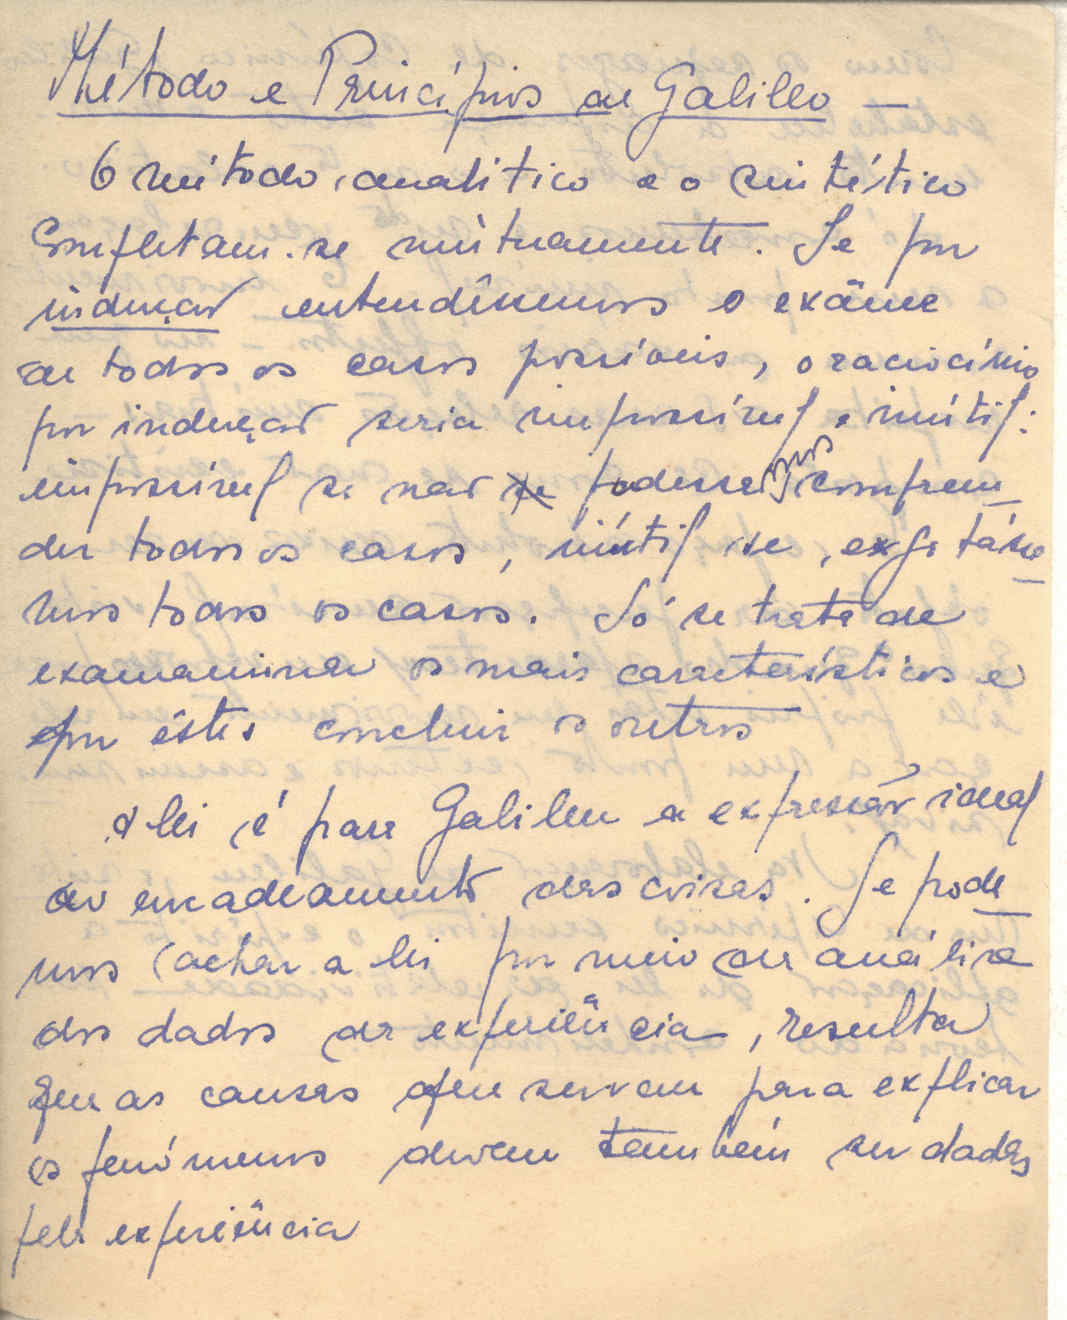 Método e Princípios de Galileo —
O método analítico e o sintético
completam-se mùtuamente. Se por
indução entendêssemos o exâme
de todos os casos possíveis, o raciocínio
por indução seria impossível e inútil:
impossível se não se podesse mos compreen
der todos os casos, inútil se, exgotásse
mos todos os casos. Só se trata de
examaminar os mais característicos e
por êstes concluir os outros
A lei é para Galileu a expressão ideal
do encadeamento das coisas. Se pode
mos achar a lei por meio da análise
dos dados da experiência, resulta
que as causas que servem para explicar
os fenómenos devem também ser dadas
pela experiência